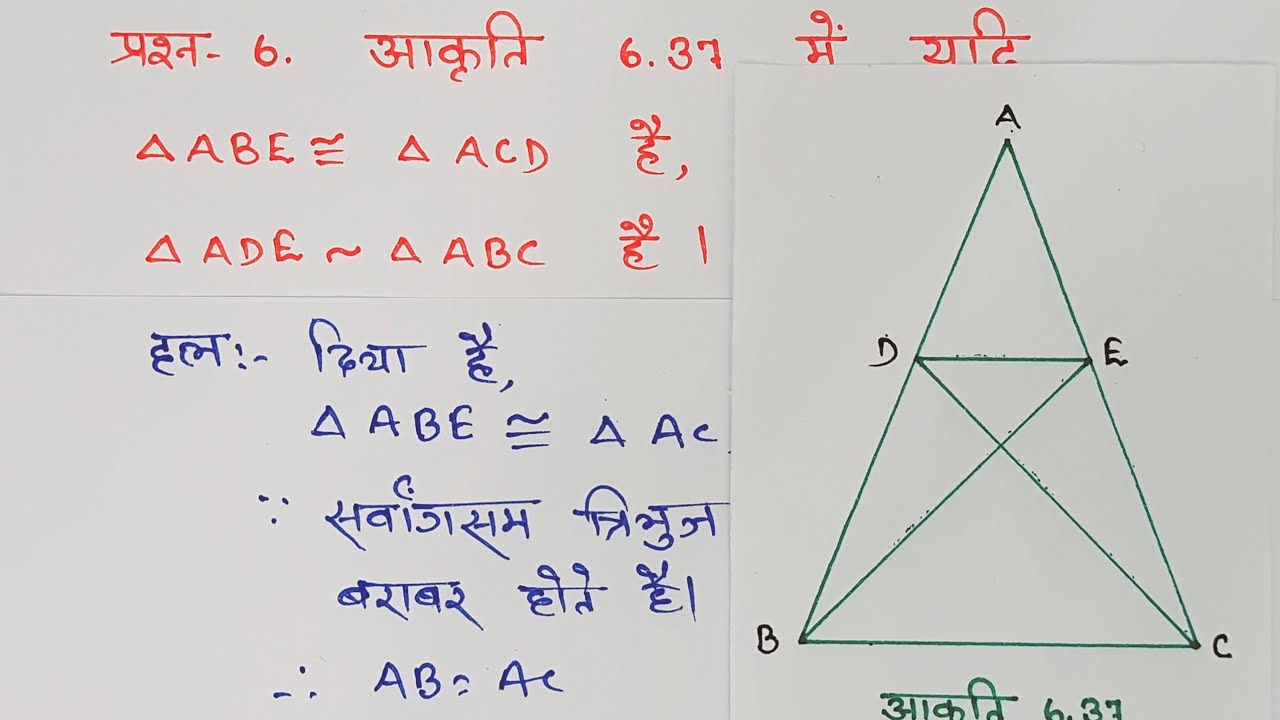 प्रश्न- 6. आकृति 6.37 में यदि
△ ABE ≅ △ ACD है,
△ ADE ~ △ ABC है ।
हल:- दिया है,
△ ABE ≅ △ AC
∵ सर्वांगसम त्रिभुज
बराबर होते है।
∴ AB = AC
A
D
E
B
C
आकृति 6.37